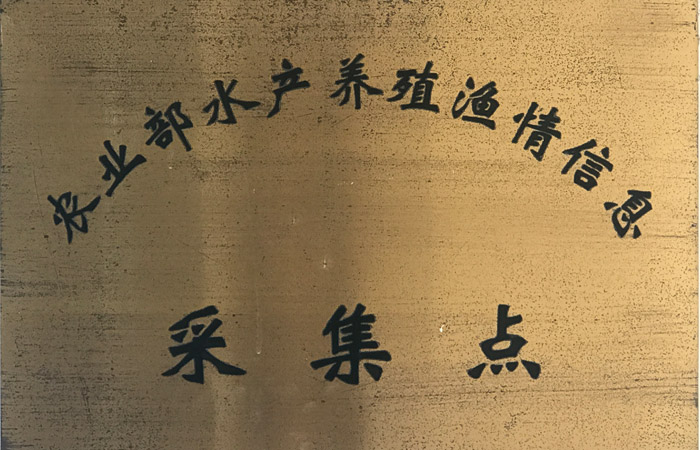 农业部水产养殖渔情信息
采集点